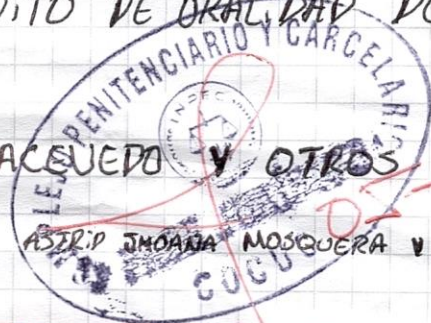 DE ORALIDAD
PENITENCIARIO Y CARCELARIO
INPEC
ACEVEDO Y OTROS
ASTRID JHOANA MOSQUERA Y